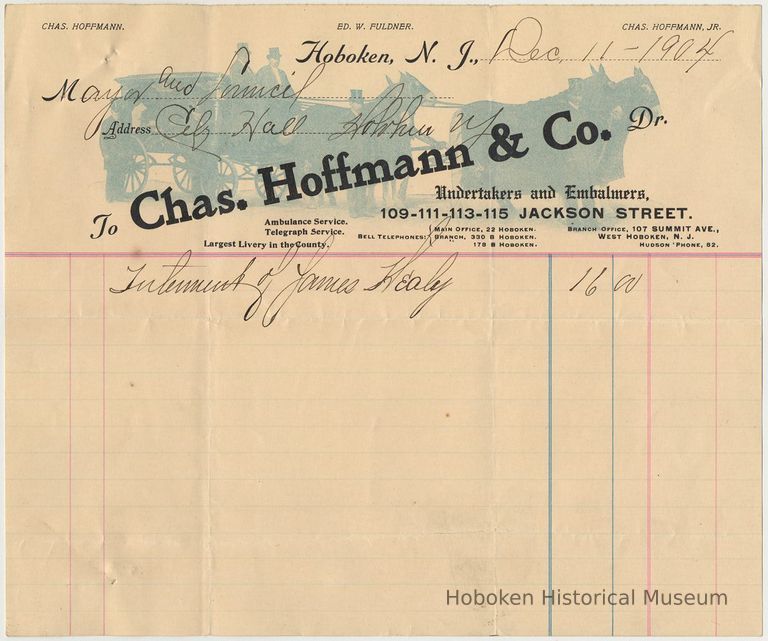 CHAS. HOFFMANN. ED. W. FULDNER. CHAS. HOFFMANN, JR.
Hoboken, N. J., Dec. 11 - 1904
Mayor and Council
Address City Hall Hoboken NJ Dr.
To Chas. Hoffmann & Co.
Undertakers and Embalmers,
109-111-113-115 JACKSON STREET.
Ambulance Service.
Telegraph Service.
Largest Livery in the County.
BELL TELEPHONES: MAIN OFFICE, 22 HOBOKEN.
BRANCH, 330 B HOBOKEN.
178 B HOBOKEN.
BRANCH OFFICE, 107 SUMMIT AVE.,
WEST HOBOKEN, N. J.
HUDSON 'PHONE, 82.
Interment of James Healy 16 00
Hoboken Historical Museum